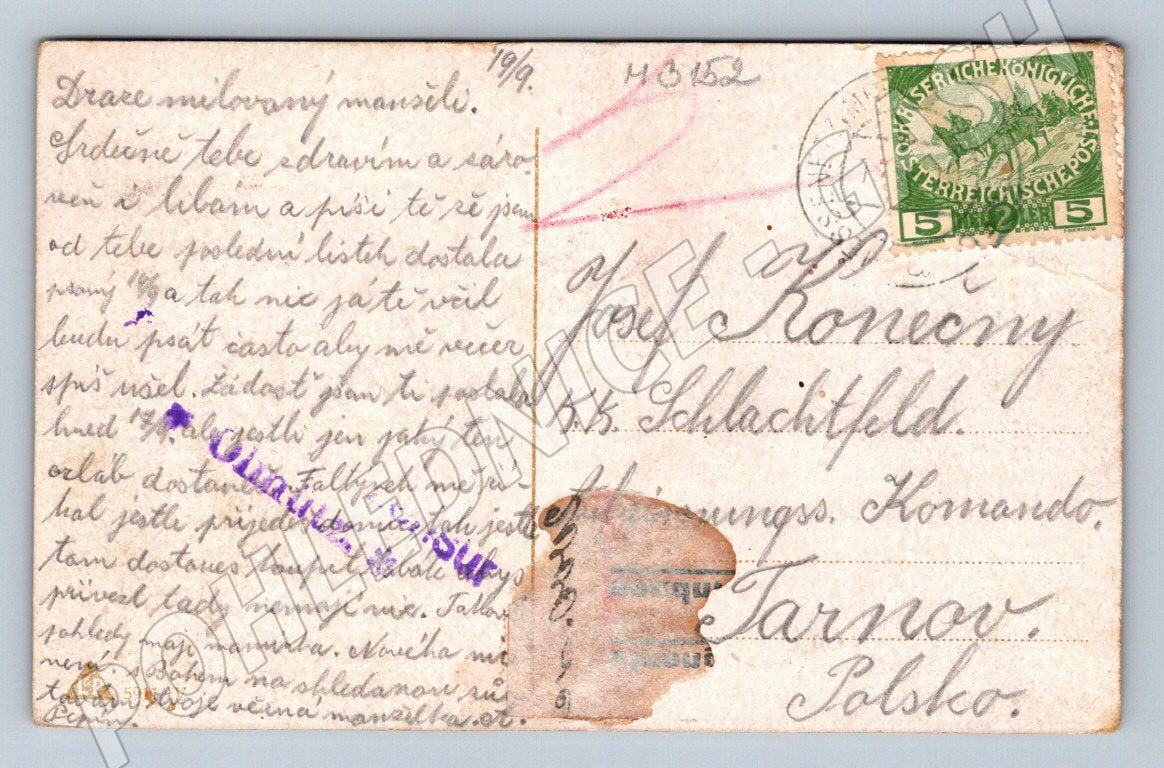 19/9.
H 3152
Draze milovaný manželi.
Srdečně tebe zdravím a záro-
veň i líbám a píši tě že jsem
od tebe poslední lístek dostala
psaný 14/9 a tak nic já tě včil
budu psát často aby mě večer
spíš ušel. Žádosť jsem ti poslala
hned 17/9. aby jestli jen jaký ten
orláb dostaneš. Faltýnek mě ří-
kal jestli přijedeš domů tak jestli
tam dostaneš koupit tabák abys
přivezl tady nemají nic. Takové
pohledy mají
Nového nic
není. s Bohem na shledanou zů-
tvoje věčná manželka.
KAISERLICHE KÖNIGLICHE
ÖSTERREICHISCHE POST
5 2 5
Josef Konečný
k.k. Schlachtfeld.
Komando.
Tarnov.
Polsko.
Zensur
Olmütz
POHLEDNICE - SH